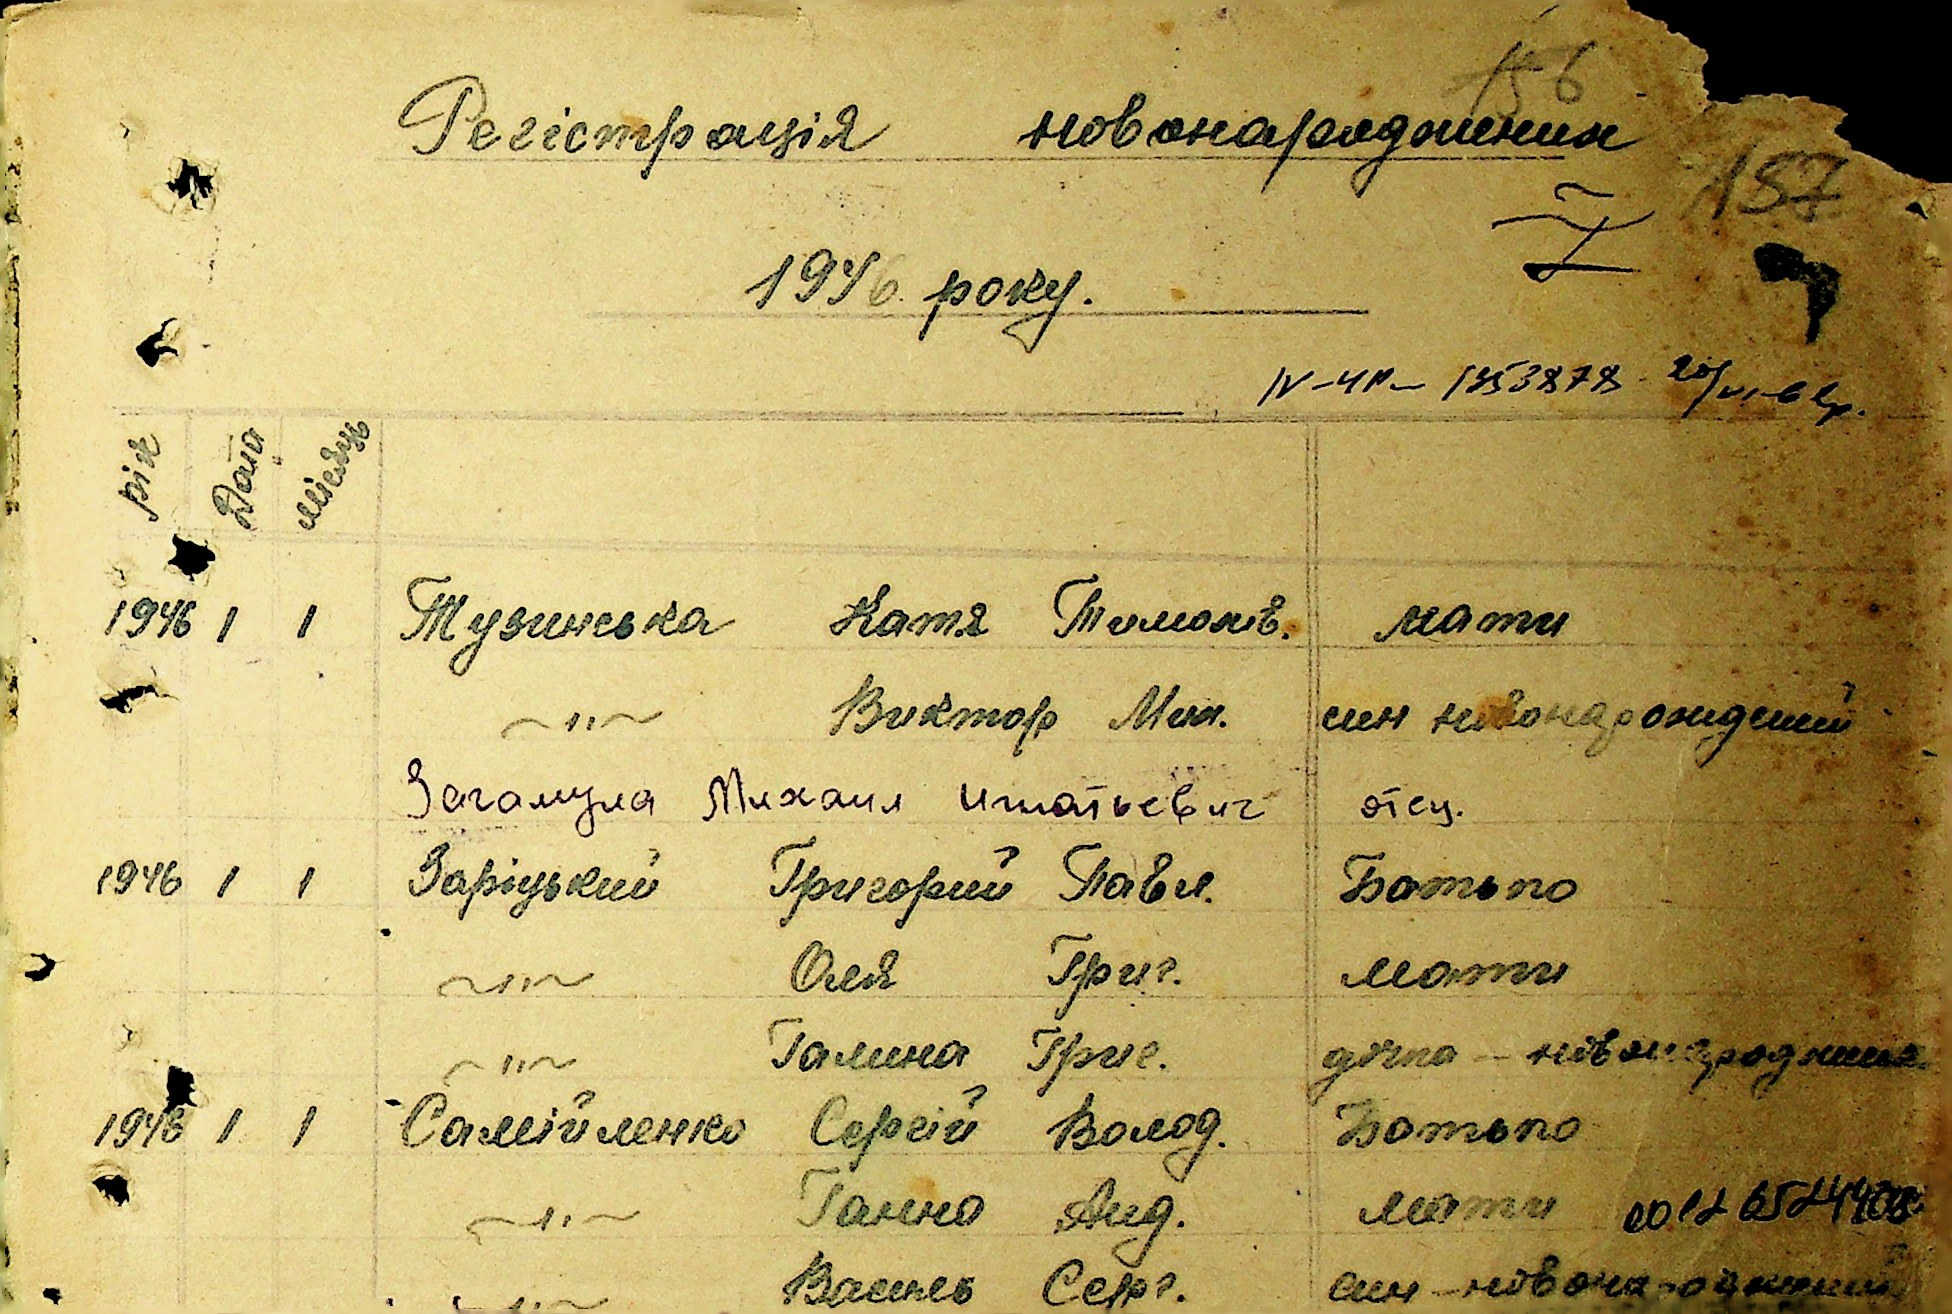 156
Регістрація новонароджених
157
I
1946 року.
IV-УР-
рік Дата місяць
1946 1 1 Тузинська Катя Тимофів. мати
〃 Виктор Мих. син новонарожденій
Загамула Михаил Игнатьевич отец.
1946 1 1 Заріцький Григорий Павл. Батько
〃 Оля Григ. мати
〃 Галина Григ. дочка - новонароджена
1946 1 1 Самійленко Сергій Волод. Батько
〃 Ганна Анд. мати
〃 Василь Серг. син - новонароджений